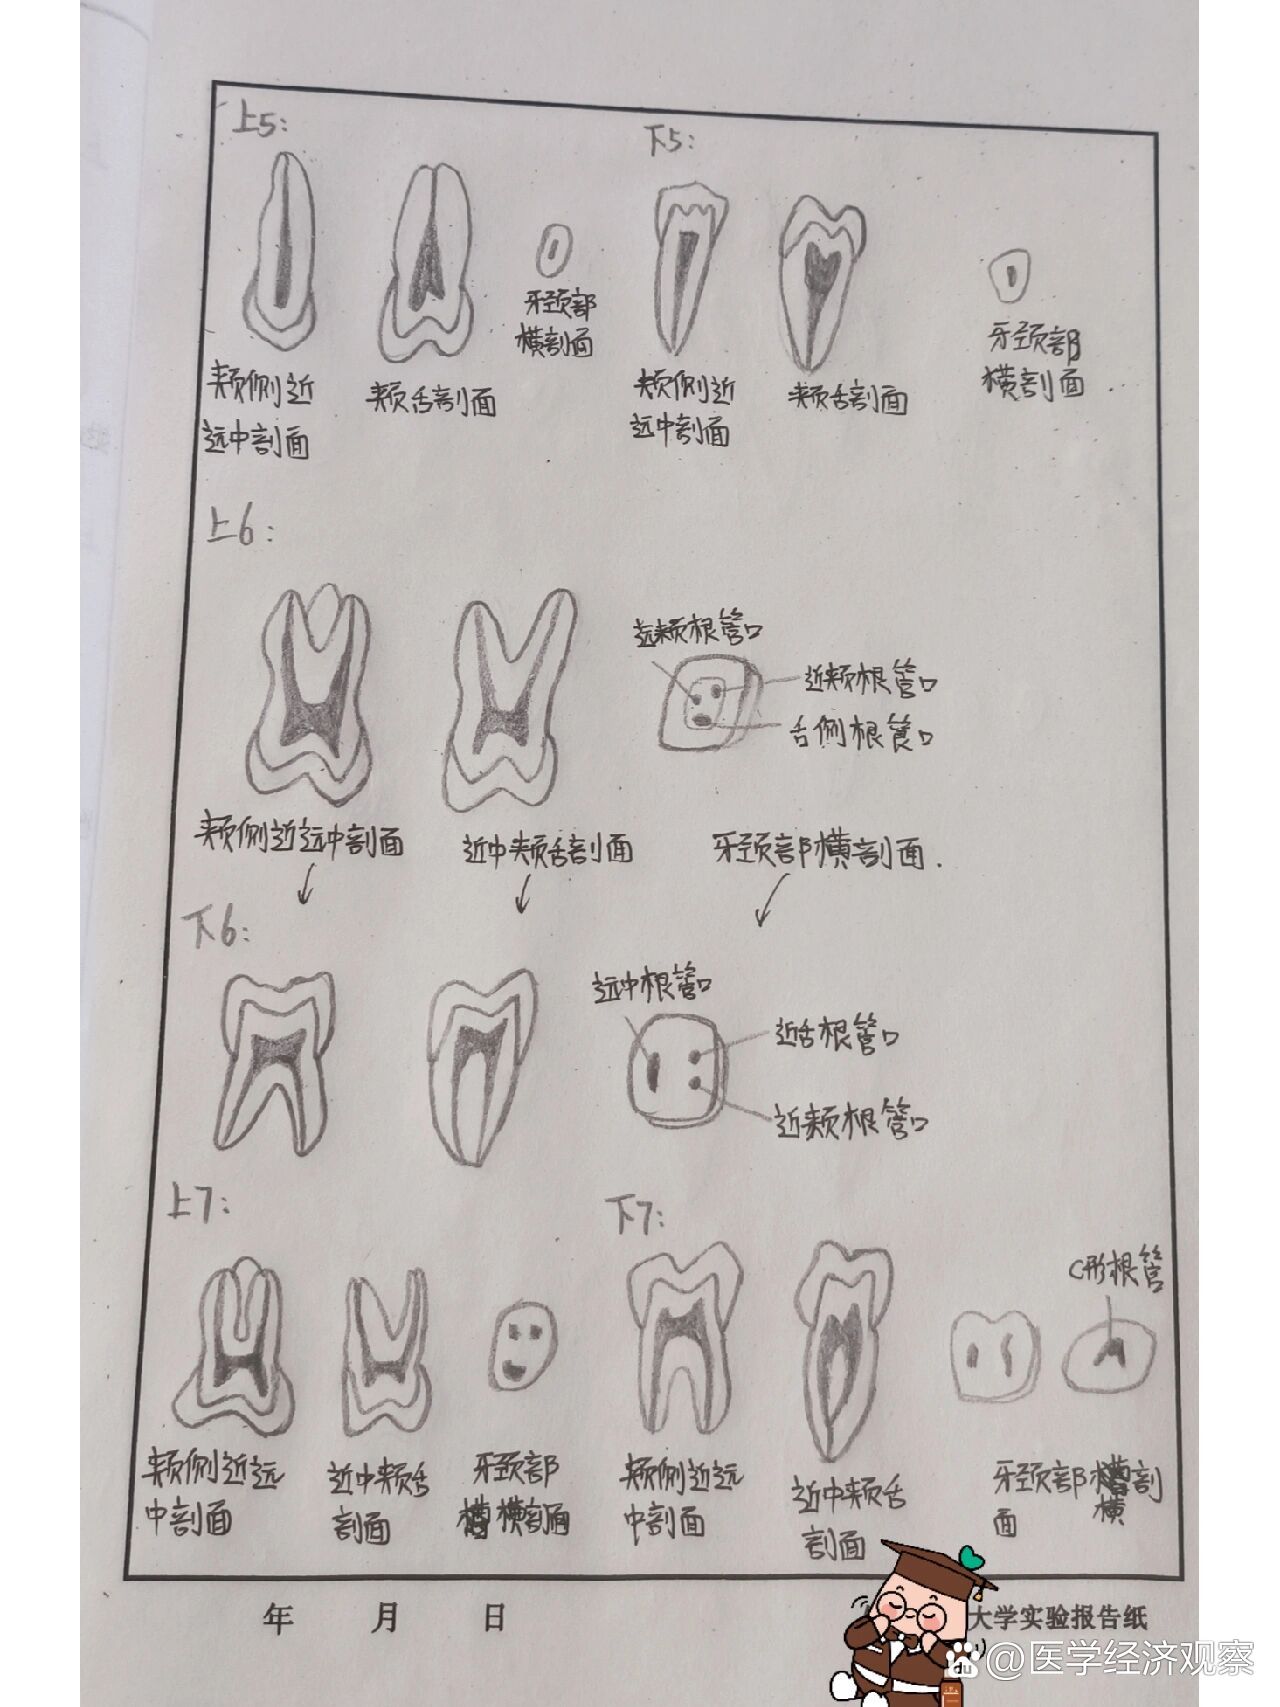 上5:
下5:
牙颈部
横剖面
牙颈部
横剖面
颊侧近
远中剖面
颊舌剖面
颊侧近
远中剖面
颊舌剖面
上6:
远颊根管口
近颊根管口
舌侧根管口
颊侧近远中剖面
近中颊舌剖面
牙颈部横剖面.
下6:
远中根管口
近舌根管口
近颊根管口
上7:
下7:
C形根管
颊侧近远
中剖面
近中颊舌
剖面
牙颈部
横剖面
颊侧近远
中剖面
近中颊舌
剖面
牙颈部横剖
面
年 月 日
大学实验报告纸
du @医学经济观察